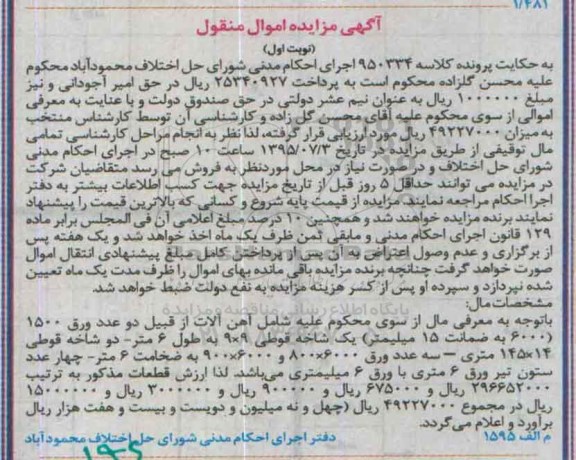 ۱/۴۸۱
آگهی مزایده اموال منقول
(نوبت اول)
به حکایت پرونده کلاسه ۹۵۰۳۳۴ اجرای احکام مدنی شورای حل اختلاف محمودآباد محکوم
علیه محسن گلزاده محکوم است به پرداخت ۲۵۳۴۰۹۲۷ ریال در حق امیر آجودانی و نیز
مبلغ ۱۰۰۰۰۰۰ ریال به عنوان نیم عشر دولتی در حق صندوق دولت و با عنایت به معرفی
اموالی از سوی محکوم علیه آقای محسن گل زاده و کارشناسی آن توسط کارشناس منتخب
به میزان ۴۹۲۲۷۰۰۰ ریال مورد ارزیابی قرار گرفته، لذا نظر به انجام مراحل کارشناسی تمامی
مال توقیفی از طریق مزایده در تاریخ ۱۳۹۵/۰۷/۳ ساعت ۱۰ صبح در اجرای احکام مدنی
شورای حل اختلاف و در صورت نیاز در محل موردنظر به فروش می رسد متقاضیان شرکت
در مزایده می توانند حداقل ۵ روز قبل از تاریخ مزایده جهت کسب اطلاعات بیشتر به دفتر
اجرا احکام مراجعه نمایند. مزایده از قیمت پایه شروع و کسانی که بالاترین قیمت را پیشنهاد
نمایند برنده مزایده خواهند شد و همچنین ۱۰ درصد مبلغ اعلامی آن فی المجلس برابر ماده
۱۲۹ قانون اجرای احکام مدنی و مابقی ثمن ظرف یک ماه اخذ خواهد شد و یک هفته پس
از برگزاری و عدم وصول اعتراض به آن پس از پرداختن کامل مبلغ پیشنهادی انتقال اموال
صورت خواهد گرفت چنانچه برنده مزایده باقی مانده بهای اموال را ظرف مدت یک ماه تعیین
شده نپردازد و سپرده او پس از کسر هزینه مزایده به نفع دولت ضبط خواهد شد.
مشخصات مال:
باتوجه به معرفی مال از سوی محکوم علیه شامل آهن آلات از قبیل دو عدد ورق ۱۵۰۰
(۶۰۰۰ به ضمانت ۱۵ میلیمتر) یک شاخه قوطی ۹×۹ به طول ۶ متر- دو شاخه قوطی
۱۴×۱۴۵ متری – سه عدد ورق ۶۰۰۰×۸۰۰ و ۶۰۰۰×۹۰۰ به ضخامت ۶ متر- چهار عدد
ستون تیر ورق ۶ متری با ورق ۶ میلیمتری می‌باشد. لذا ارزش قطعات مذکور به ترتیب
۲۹۶۶۵۲۰۰۰ ریال و ۶۷۵۰۰۰ ریال و ۹۰۰۰۰۰ ریال و ۳۰۰۰۰۰۰ ریال و ۱۵۰۰۰۰۰۰
ریال در مجموع ۴۹۲۲۷۰۰۰ ریال (چهل و نه میلیون و دویست و بیست و هفت هزار ریال
برآورد و اعلام می‌گردد.
م الف ۱۵۹۵
دفتر اجرای احکام مدنی شورای حل اختلاف محمودآباد
پایگاه اطلاع رسانی مناقصه و مزایده